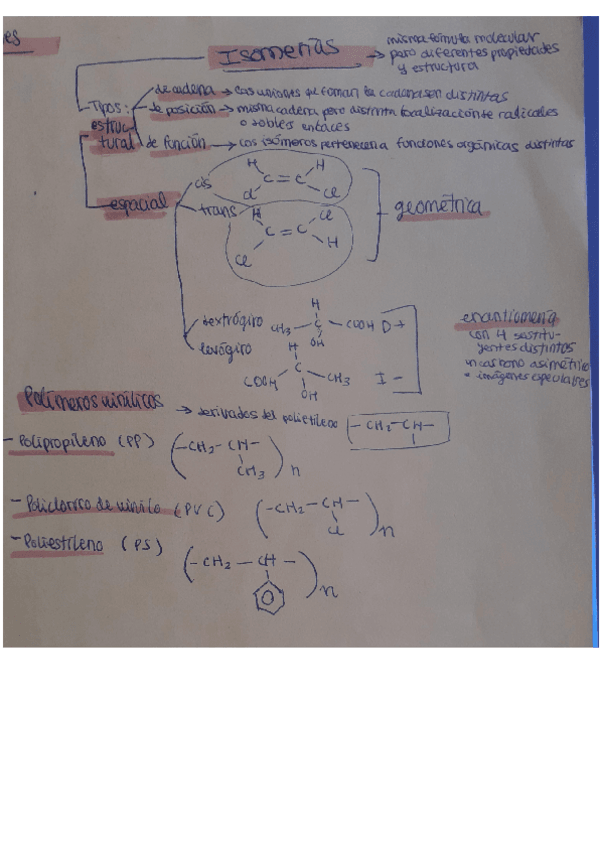 es
Isomerías → misma fórmula molecular
pero diferentes propiedades
y estructura
Tipos:
estructural
de cadena → los uniones que forman la cadena son distintas
de posición → misma cadena pero distinta localización de radicales
o dobles enlaces
de función → los isómeros pertenecen a funciones orgánicas distintas
espacial
cis
H H
C = C
cl cl
trans
H cl
C = C
cl H
geométrica
dextrógiro
H
CH3 — C — COOH D +
OH
levógiro
H
COOH C CH3 I -
OH
enantiomería
con 4 sustitu-
yentes distintos
un carbono asimétrico
* imágenes especulares
Polímeros vinílicos → derivados del polietileno -CH2-CH-
- Polipropileno (PP) (-CH2-CH-)n
CH3
- Policloruro de vinilo (PVC) (-CH2-CH-)n
cl
- Poliestileno (PS) (-CH2-CH-)n